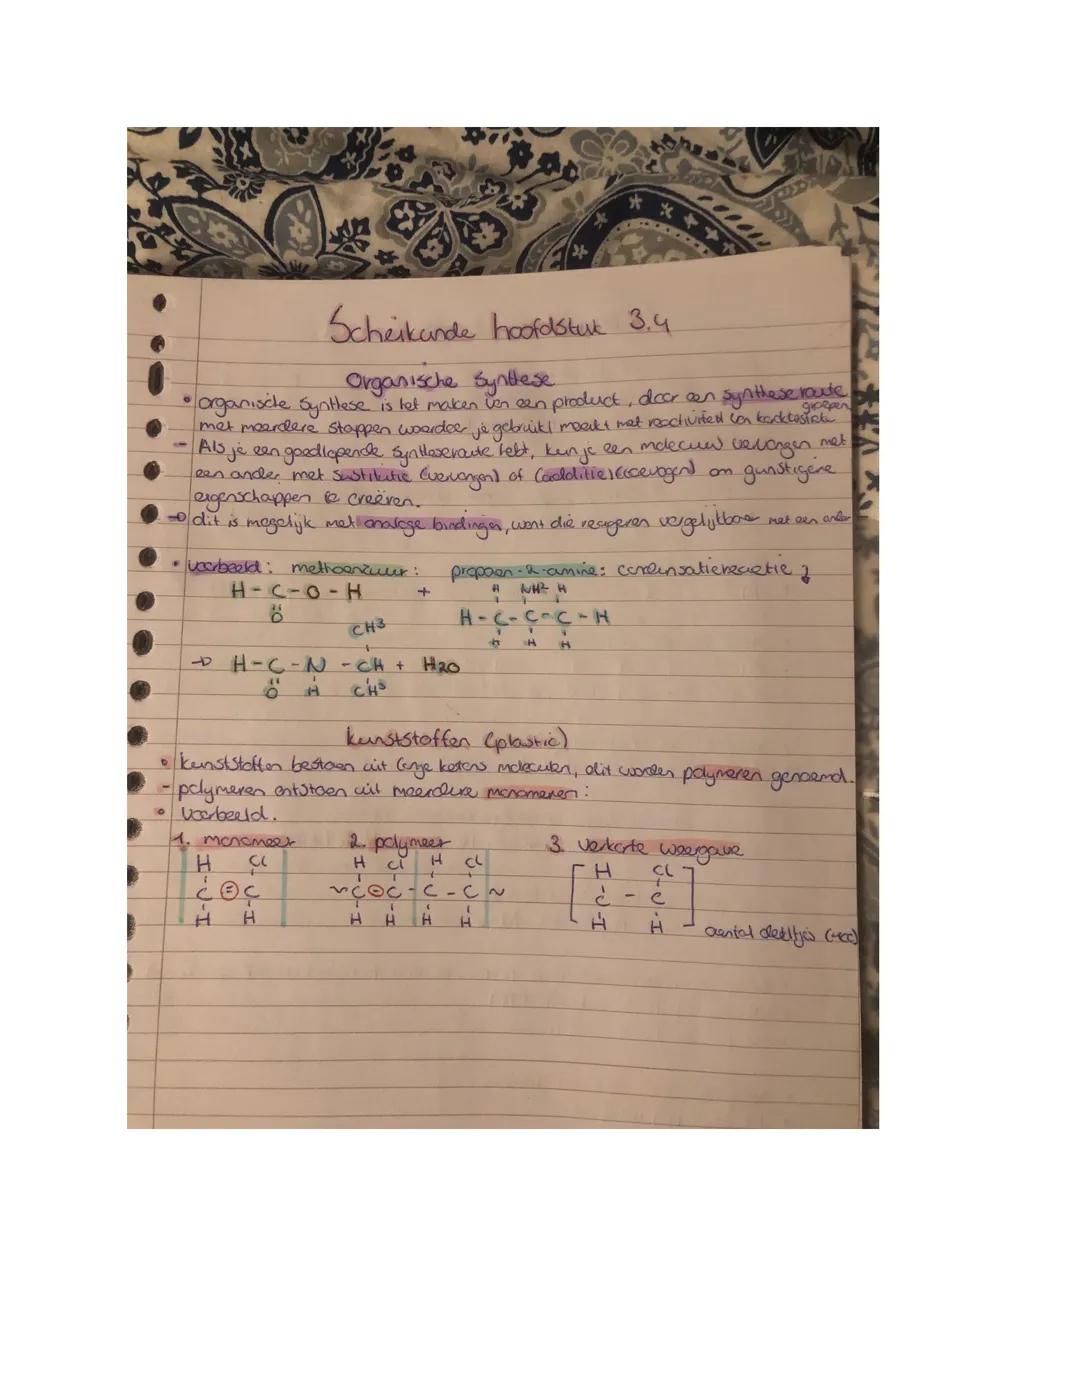 Scheikunde hoofdstuk 3.4
Organische synthese
• organische synthese is het maken van een product, door een syntheseroute
met meerdere stappen waardoor je gebruikt maakt met reactiviteit van groepen
- Als je een goedlopende syntheseroute hebt, kun je een molecuul vervangen met
een ander, met substitutie (vervangen) of (additie) (toevoegen) om gunstigere
eigenschappen te creëren.
→ dit is mogelijk met analoge bindingen, want die reageren vergelijkbaar met een ander
• voorbeeld: methaanzuur: propaan-2-amine: condensatiereactie
H NH2 H
H-C-O-H + H-C-C-C-H
O H H H
CH3
→ H-C-N-CH + H2O
O H CH3
kunststoffen (plastic)
• kunststoffen bestaan uit lange ketens moleculen, dit worden polymeren genoemd.
- polymeren ontstaan uit meerdere monomeren:
• voorbeeld.
1. monomeer 2. polymeer 3. verkorte weergave
H Cl H Cl H Cl H Cl
C=C ~C-C-C-C~ C-C
H H H H H H H H
aantal deeltjes